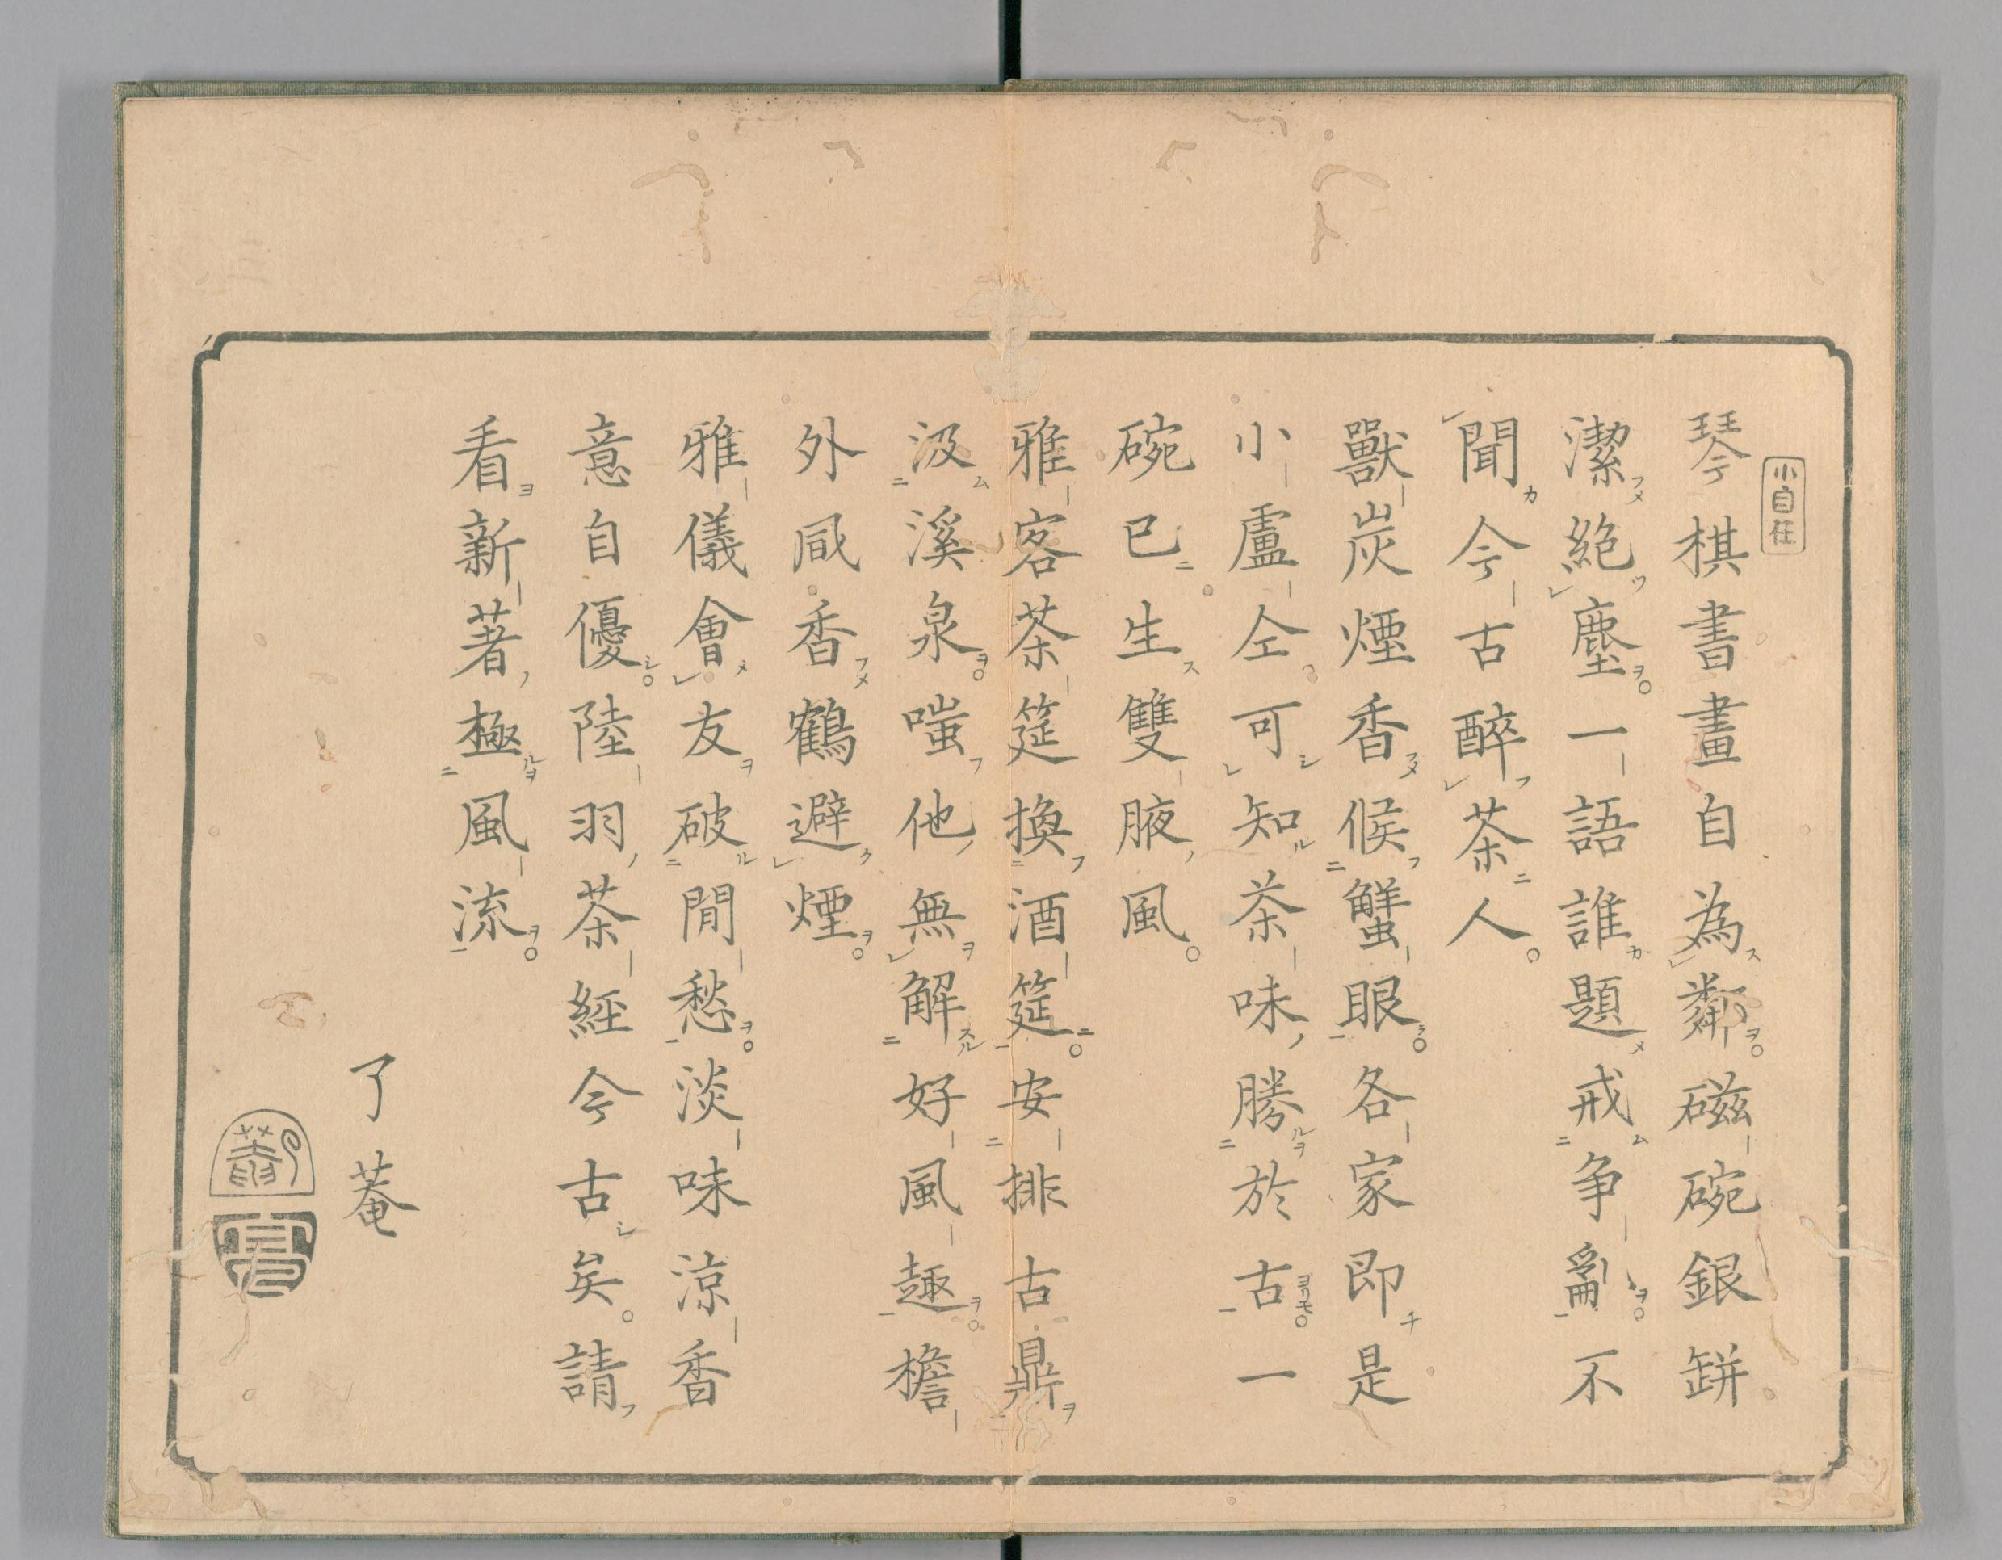 小自在
琴棋書畫自為鄰磁碗銀缾
潔絶塵一語誰題戒争亂不
聞今古醉茶人
獸炭煙香候蟹眼各家即是
小盧仝可知茶味勝於古一
碗已生雙腋風
雅客茶筵換酒筵安排古鼎
汲溪泉嗤他無解好風趣檐
外凨香鶴避煙
雅儀會友破閒愁淡味涼香
意自優陸羽茶經今古矣請
看新著極風流
了菴